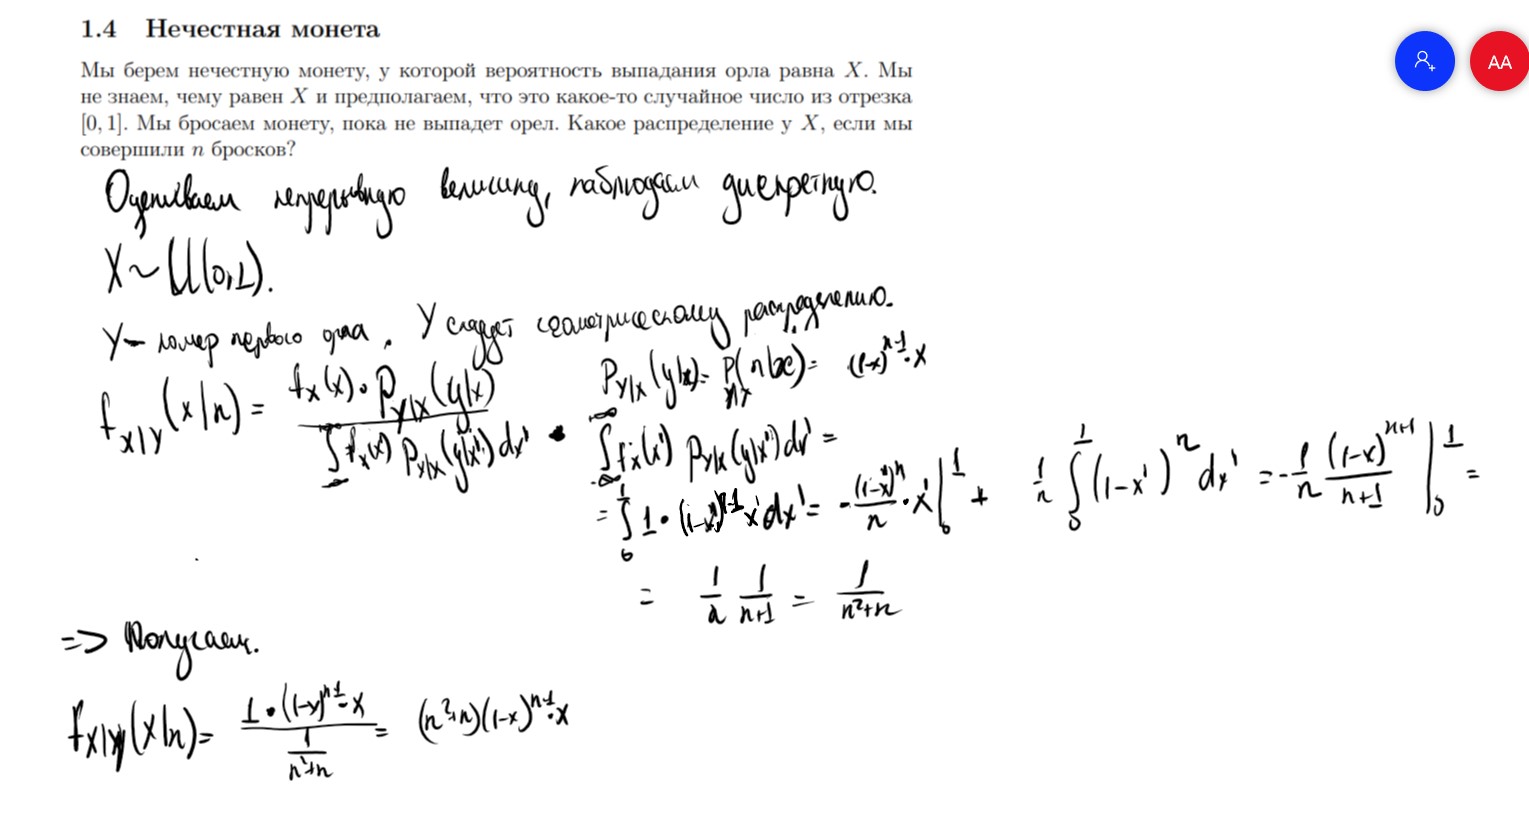 1.4 Нечестная монета
AA
Мы берем нечестную монету, у которой вероятность выпадания орла равна X. Мы
не знаем, чему равен X и предполагаем, что это какое-то случайное число из отрезка
[0, 1]. Мы бросаем монету, пока не выпадет орел. Какое распределение у X, если мы
совершили n бросков?
Оцениваем непрерывную величину, наблюдаем дискретную.
X ~ U(0,1).
Y — номер первого орла. Y следует геометрическому распределению.
f_{X|Y}(x|n) = \frac{f_X(x) \cdot P_{Y|X}(y|x)}{\int_{-\infty}^{\infty} f_X(x') P_{Y|X}(y|x') dx'}
P_{Y|X}(y|x) = P(n|x) = (1-x)^{n-1} \cdot x
\int_{-\infty}^{\infty} f_X(x') P_{Y|X}(y|x') dx' =
= \int_0^1 1 \cdot (1-x')^{n-1} x' dx' = -\frac{(1-x')^n}{n} \cdot x' |_0^1 + \frac{1}{n} \int_0^1 (1-x')^n dx' = -\frac{1}{n} \frac{(1-x)^{n+1}}{n+1} |_0^1 =
= \frac{1}{n} \frac{1}{n+1} = \frac{1}{n^2+n}
=> Получаем.
f_{X|Y}(x|n) = \frac{1 \cdot (1-x)^{n-1} \cdot x}{\frac{1}{n^2+n}} = (n^2+n)(1-x)^{n-1} \cdot x